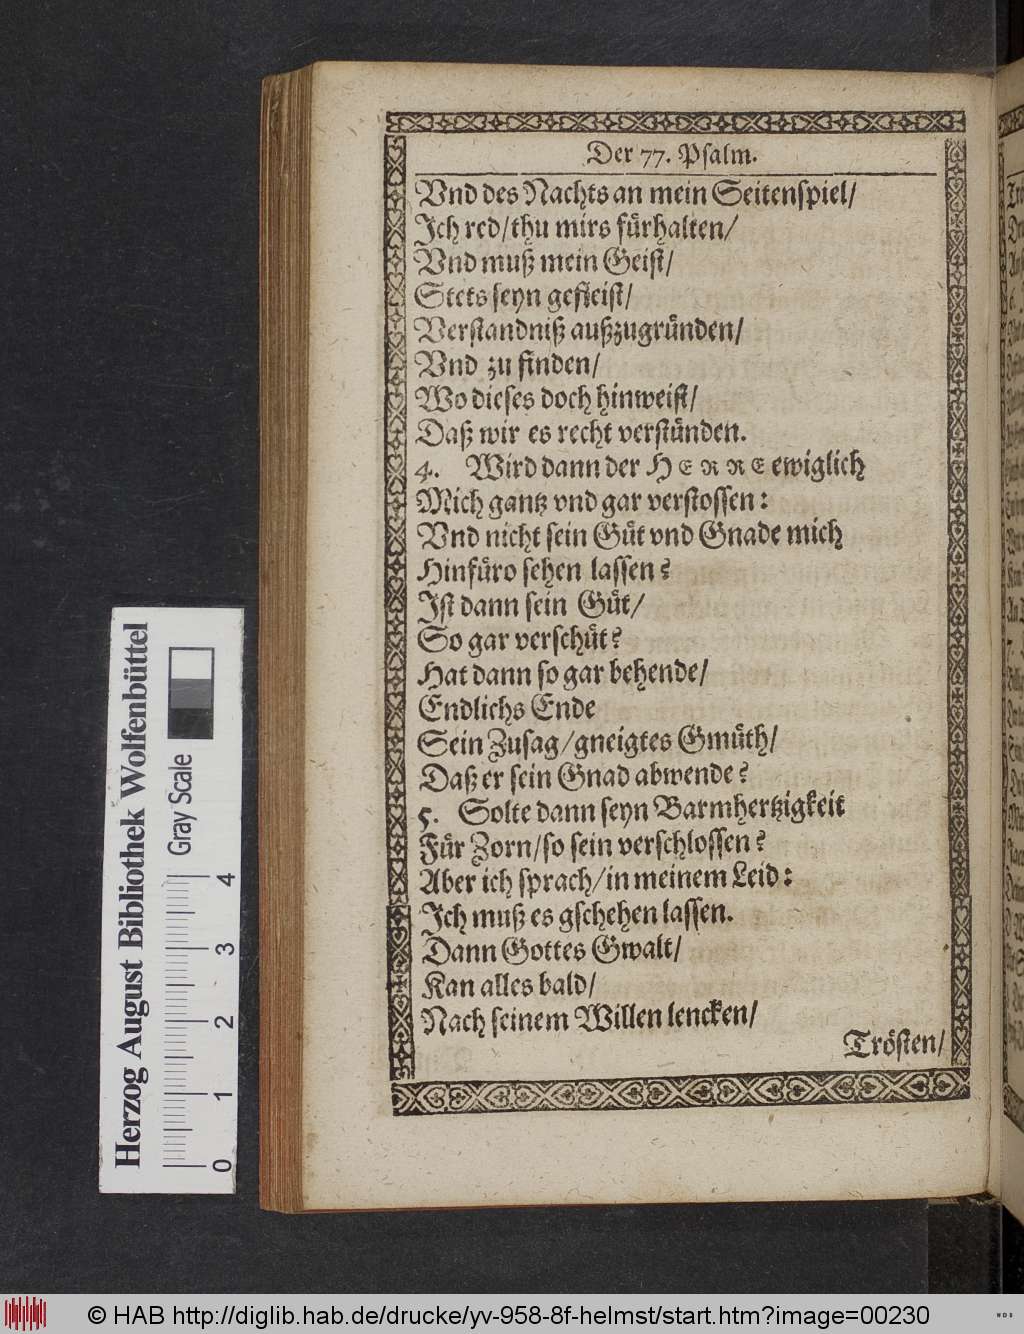 Der 77. Psalm.
Vnd des Nachts an mein Seitenspiel/
Ich red/thu mirs fürhalten/
Vnd muß mein Geist/
Stets seyn gefleist/
Verstandniß außzugründen/
Vnd zu finden/
Wo dieses doch hinweist/
Daß wir es recht verstünden.
4. Wird dann der HERRE ewiglich
Mich gantz vnd gar verstossen:
Vnd nicht sein Güt vnd Gnade mich
Hinfüro sehen lassen?
Ist dann sein Güt/
So gar verschüt?
Hat dann so gar behende/
Endlichs Ende
Sein Zusag/gneigtes Gmüth/
Daß er sein Gnad abwende?
5. Solte dann seyn Barmhertzigkeit
Für Zorn/so sein verschlossen?
Aber ich sprach/in meinem Leid:
Ich muß es gschehen lassen.
Dann Gottes Gwalt/
Kan alles bald/
Nach seinem Willen lencken/
Trösten/
Herzog August Bibliothek Wolfenbüttel
Gray Scale
0 1 2 3 4
© HAB http://diglib.hab.de/drucke/yv-958-8f-helmst/start.htm?image=00230